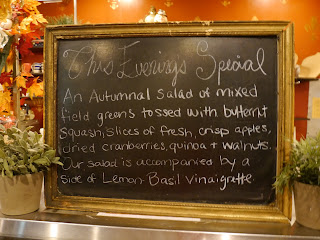 This Evenings Special
An Autumnal Salad of mixed
field greens tossed with butternut
squash, slices of fresh, crisp apples,
dried cranberries, quinoa + walnuts.
Our salad is accompanied by a
side of Lemon-Basil Vinaigrette.